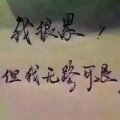 我很累，
但我无路可退